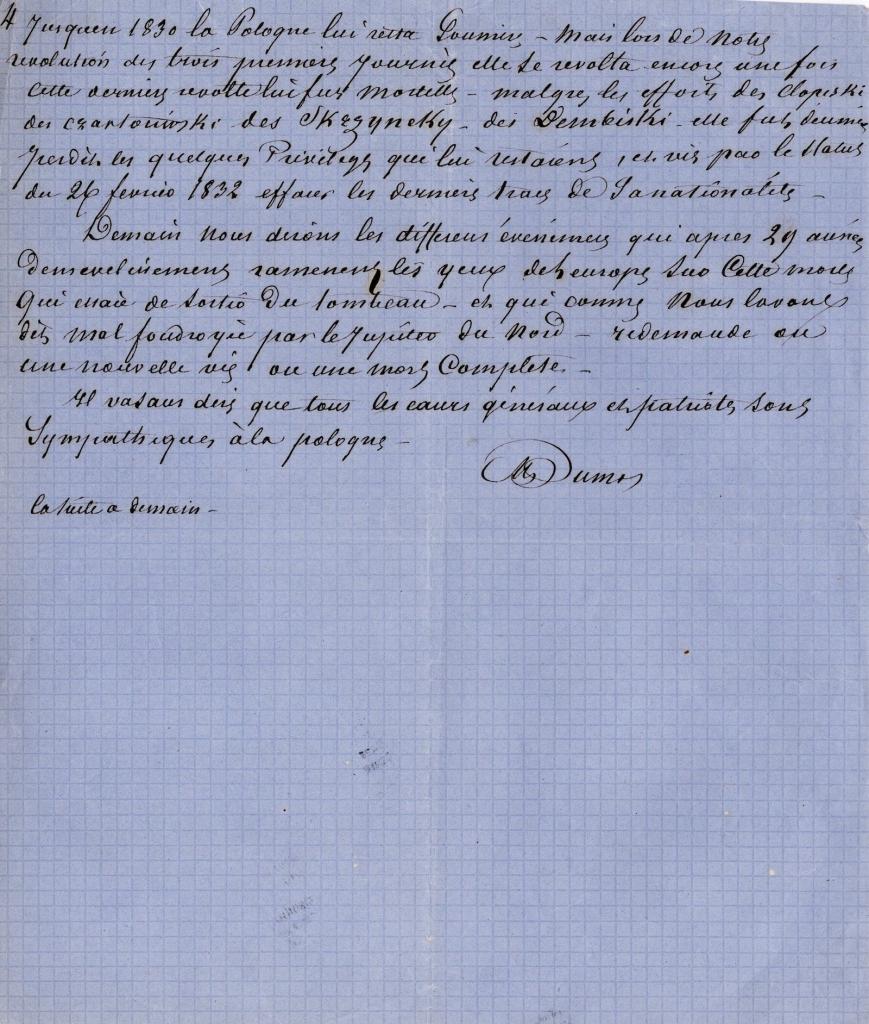 4 Jusquen 1830 la Pologne lui resta Soumise – Mais lors de notre
revolution des trois premieres journées elle se revolta encore une fois
cette derniere revolte lui fut mortelle – malgre les efforts des Clopiski
des czartoriwski des Skrzynecky – des Dembiski elle fut soumise
perdit les quelques Privileges qui lui restaient, et vit par le Statut
du 26 fevrier 1832 effacer les derniers traces de sa nationalité –
Demain nous dirons les differens évenemens qui apres 29 années
densevelissement ramenent les yeux de l'europe sur cette morte
qui essaie de sortir du tombeau – et qui comme nous lavons
dit mal foudroyée par le Jupiter du Nord – redemande ou
une nouvelle vie ou une mort Complete –
Il va sans dire que tous les cœurs généraux et patriotes sont
Sympathiques à la pologne –
Al Dumas
la suite a demain –